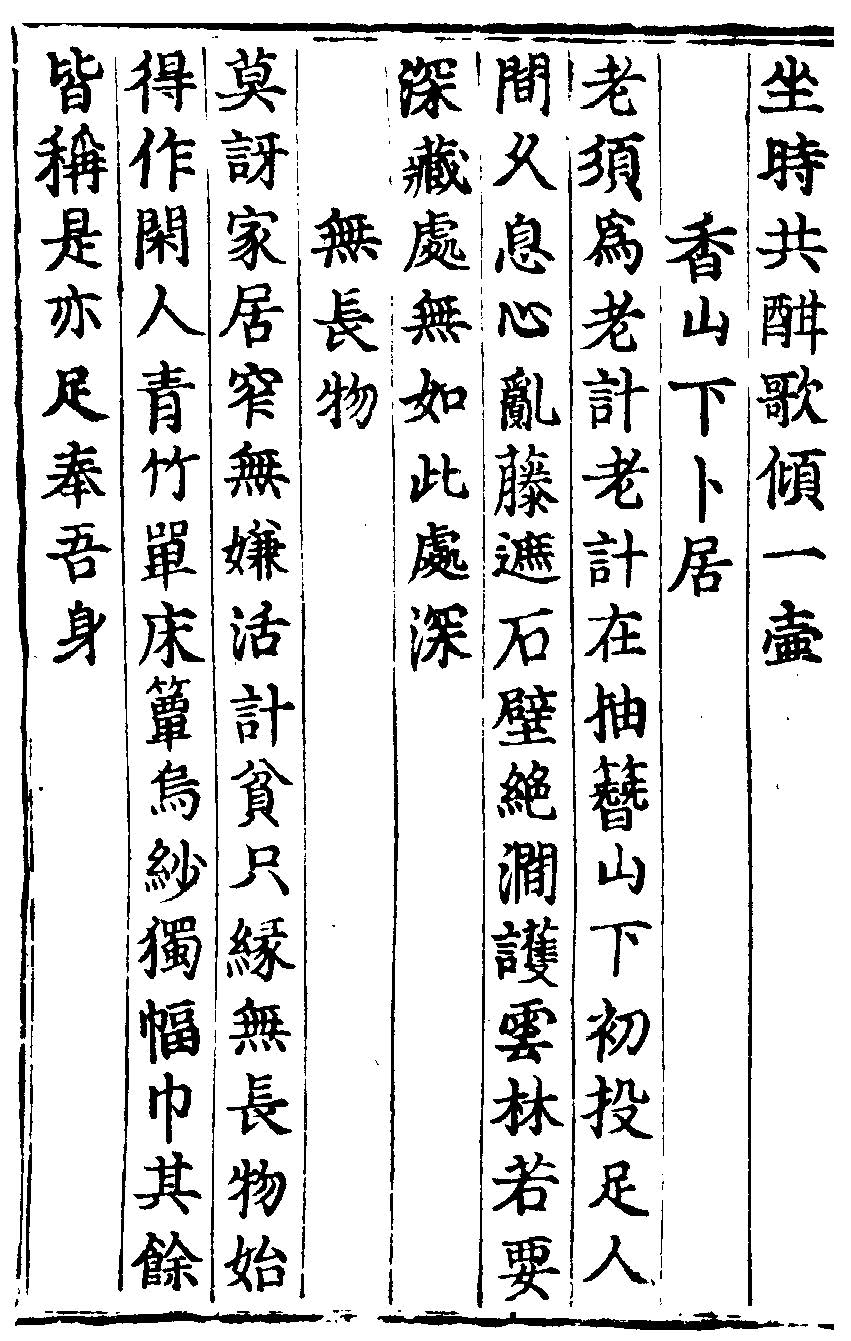 坐時共酣歌傾一壷
香山下卜居
老須爲老計老計在抽簮山下初投足人
間久息心亂藤遮石壁絶澗護雲林若要
深藏處無如此處深
無長物
莫訝家居窄無嫌活計貧只縁無長物始
得作閑人青竹單床簟烏紗獨幅巾其餘
皆稱是亦足奉吾身